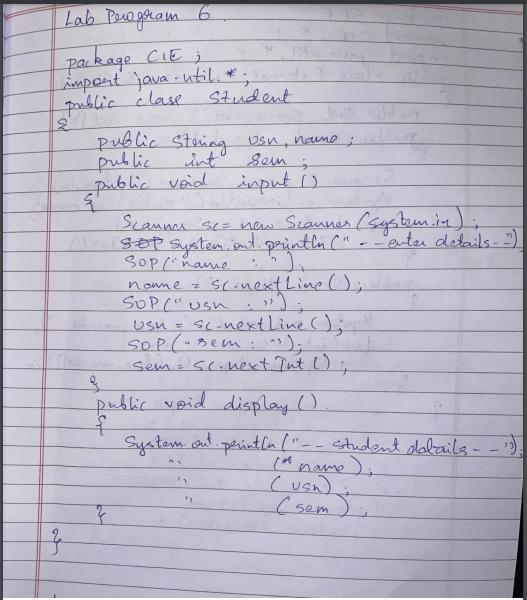 Lab Program 6
package CIE ;
import java.util.* ;
public class Student
{
public String usn, name ;
public int sem ;
public void input ()
{
Scanner sc = new Scanner (System.in) ;
SOP System.out.println (" - - enter details - - ")
SOP ("name : ") ;
name = sc.nextLine () ;
SOP (" usn : ") ;
usn = sc.nextLine () ;
SOP (" sem : ") ;
sem = sc.next.Int () ;
}
public void display ()
{
System.out.println (" - - student details - - ") ;
" (" name) ;
" (usn) ;
" (sem) ;
}
}